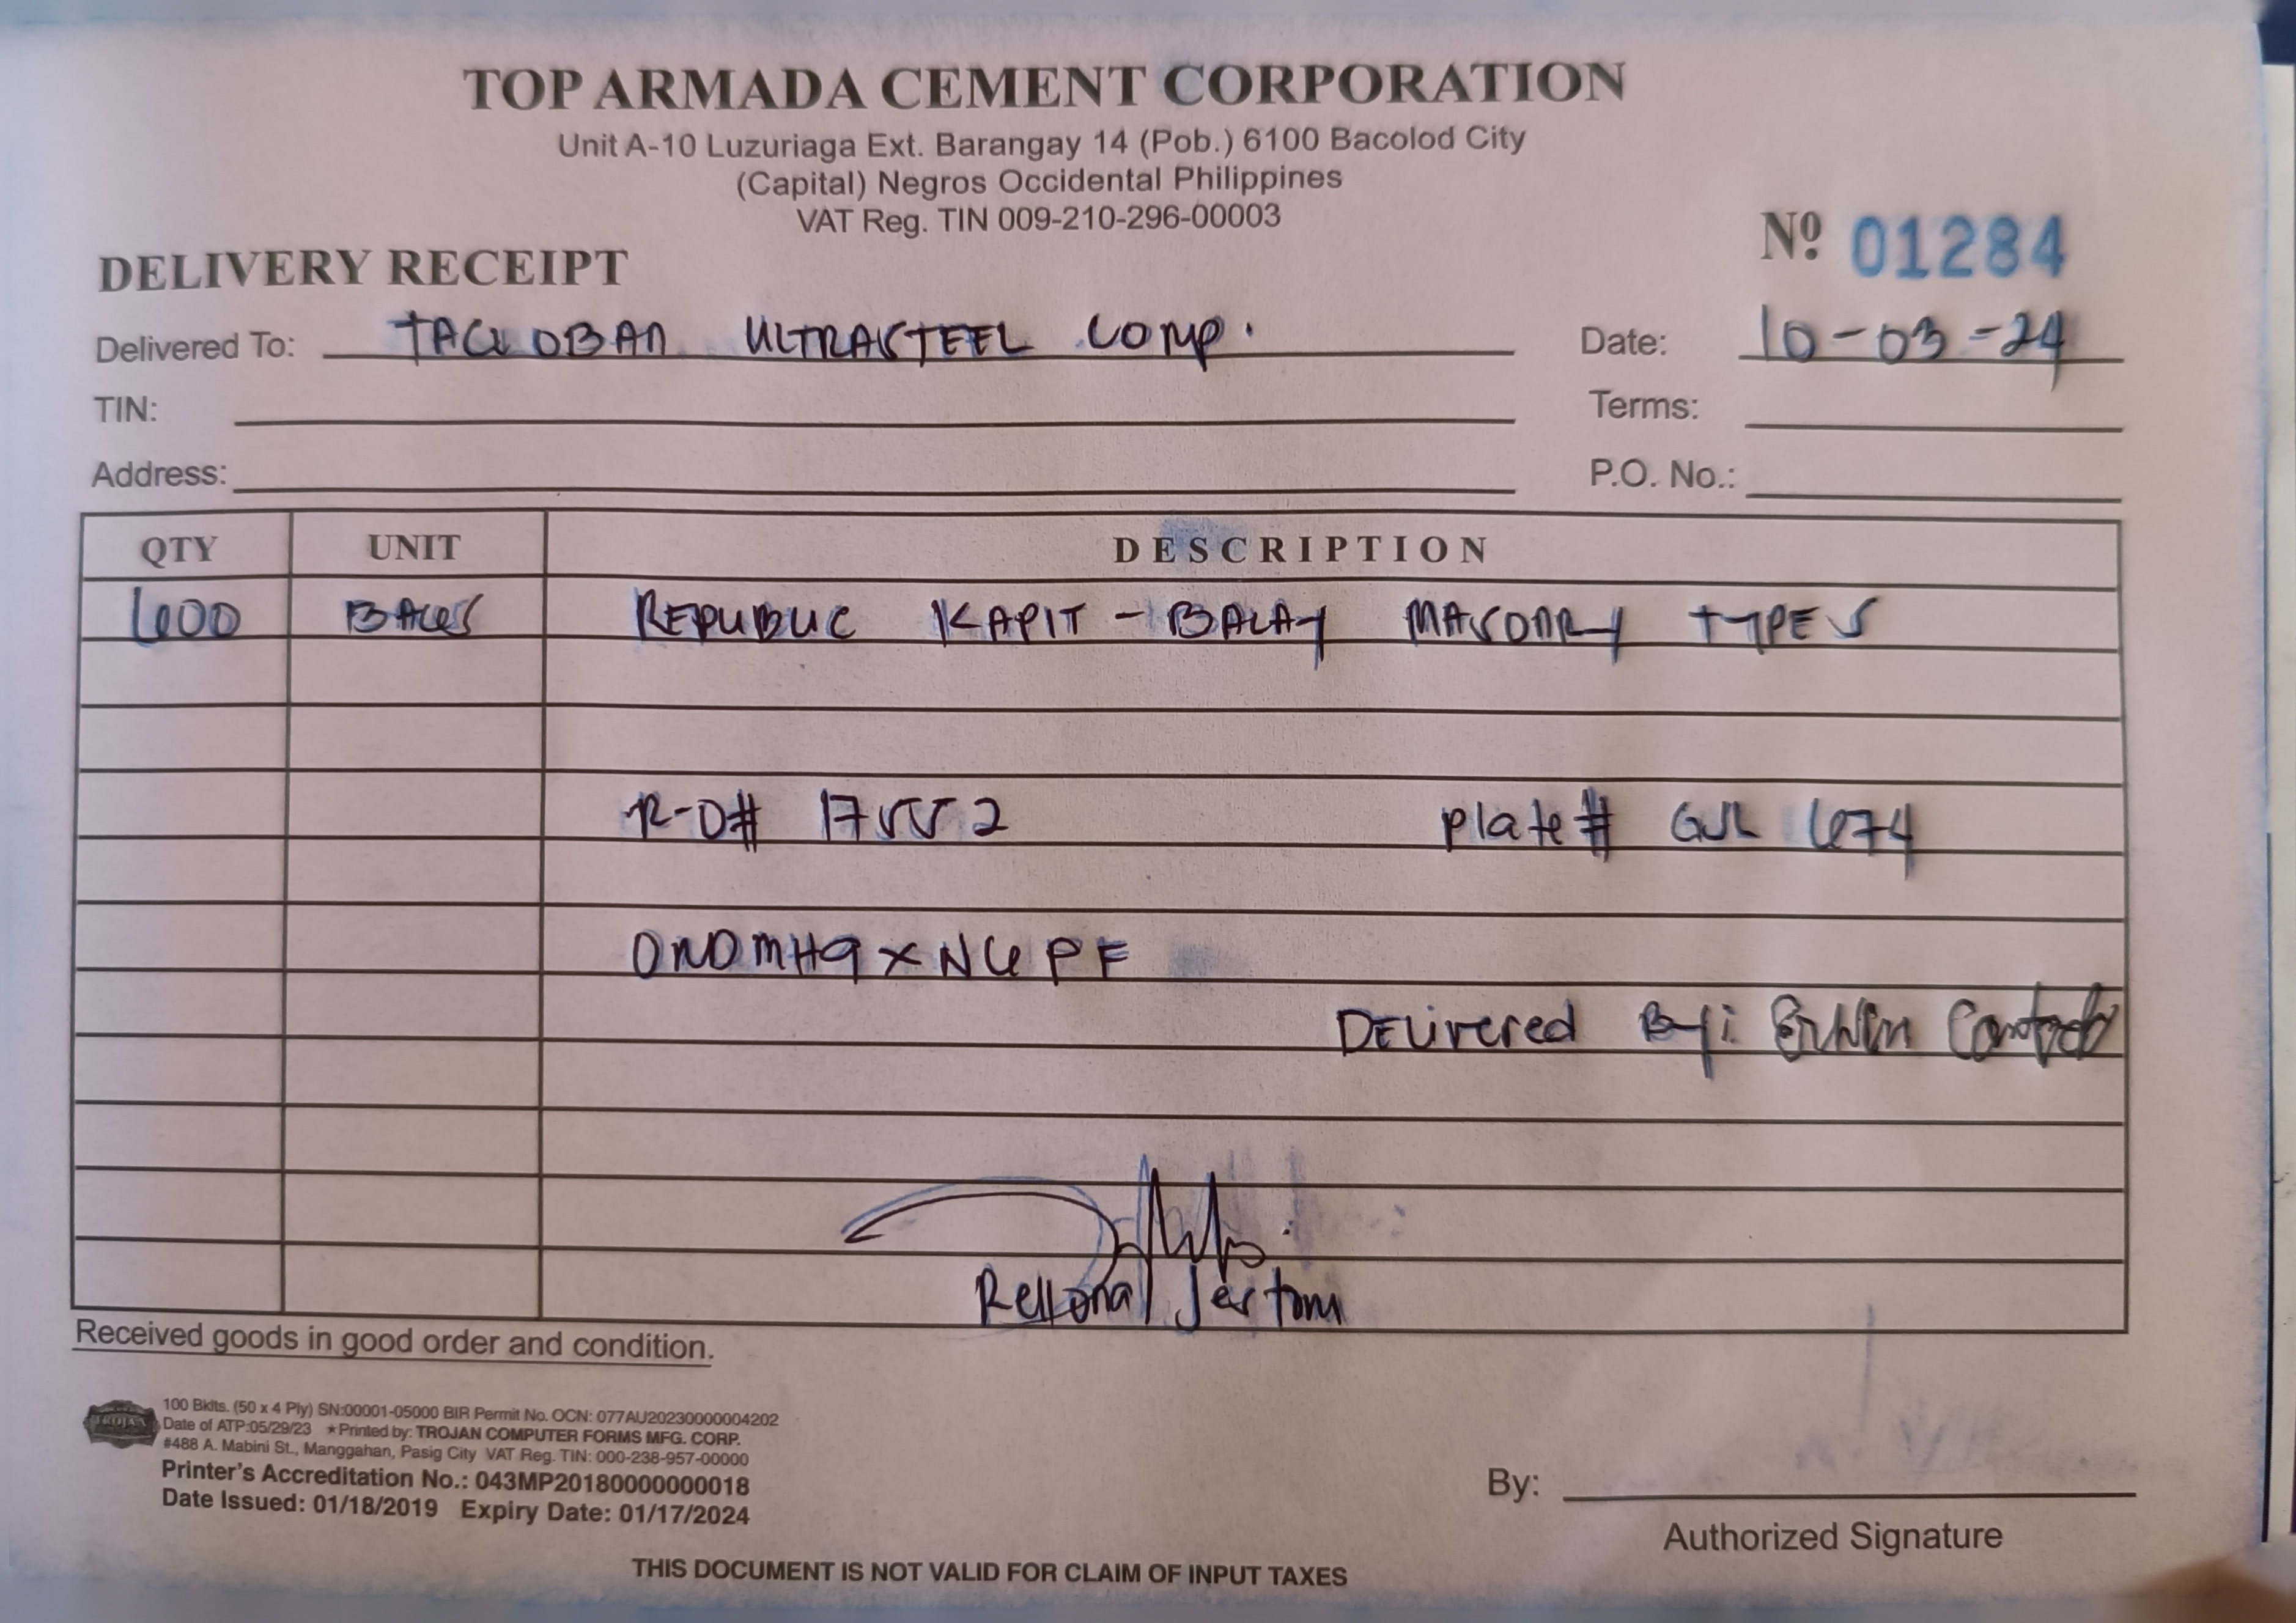 TOP ARMADA CEMENT CORPORATION
Unit A-10 Luzuriaga Ext. Barangay 14 (Pob.) 6100 Bacolod City
(Capital) Negros Occidental Philippines
VAT Reg. TIN 009-210-296-00003
Nº 01284
DELIVERY RECEIPT
Delivered To: TACLOBAN ULTRASTEEL CORP. Date: 10-03-24
TIN: Terms:
Address: P.O. No.:
QTY UNIT DESCRIPTION
600 BAGS REPUBLIC KAPIT-BALAY MASONRY TYPE S
R-O# 17552 Plate# 674
DELIVERED BY: Erwin
Jestoni
Received goods in good order and condition.
TROJAN
100 Bklts. (50 x 4 Ply) SN:00001-05000 BIR Permit No. OCN: 077AU20230000004202
Date of ATP:05/29/23 ★Printed by: TROJAN COMPUTER FORMS MFG. CORP.
#488 A. Mabini St., Manggahan, Pasig City VAT Reg. TIN: 000-238-957-00000
Printer's Accreditation No.: 043MP20180000000018
Date Issued: 01/18/2019 Expiry Date: 01/17/2024
By:
Authorized Signature
THIS DOCUMENT IS NOT VALID FOR CLAIM OF INPUT TAXES